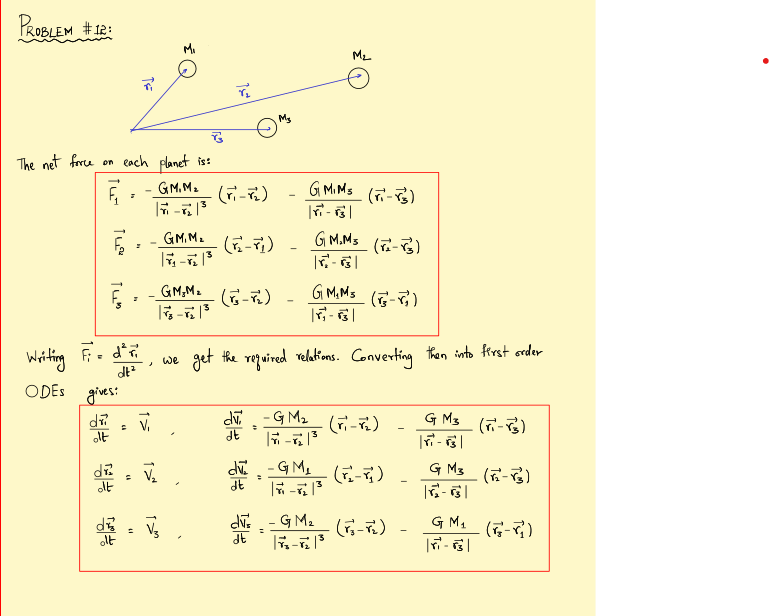 PROBLEM #12:
M1
M2
M3
r⃗1
r⃗2
r⃗3
The net force on each planet is:
F⃗1 = -GM1M2/|r⃗1-r⃗2|^3 (r⃗1-r⃗2) - GM1M3/|r⃗1-r⃗3| (r⃗1-r⃗3)
F⃗2 = -GM1M2/|r⃗1-r⃗2|^3 (r⃗2-r⃗1) - GM2M3/|r⃗2-r⃗3| (r⃗2-r⃗3)
F⃗3 = -GM3M2/|r⃗3-r⃗2|^3 (r⃗3-r⃗2) - GM1M3/|r⃗1-r⃗3| (r⃗3-r⃗1)
Writing F⃗i = d²r⃗i/dt², we get the required relations. Converting then into first order
ODEs gives:
dr⃗1/dt = V⃗1 , dV⃗1/dt = -GM2/|r⃗1-r⃗2|^3 (r⃗1-r⃗2) - GM3/|r⃗1-r⃗3| (r⃗1-r⃗3)
dr⃗2/dt = V⃗2 , dV⃗2/dt = -GM1/|r⃗1-r⃗2|^3 (r⃗2-r⃗1) - GM3/|r⃗2-r⃗3| (r⃗2-r⃗3)
dr⃗3/dt = V⃗3 , dV⃗3/dt = -GM2/|r⃗3-r⃗2|^3 (r⃗3-r⃗2) - GM1/|r⃗1-r⃗3| (r⃗3-r⃗1)